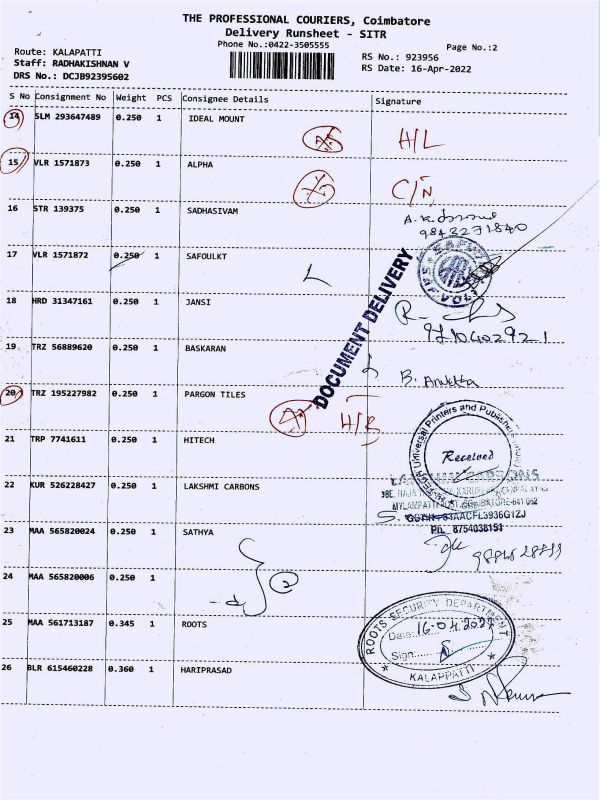 THE PROFESSIONAL COURIERS, Coimbatore
Delivery Runsheet - SITR
Phone No.:0422-3505555
Page No.:2
Route: KALAPATTI
Staff: RADHAKISHNAN V
DRS No.: DCJB92395602
RS No.: 923956
RS Date: 16-Apr-2022
S No Consignment No Weight PCS Consignee Details Signature
14 SLM 293647489 0.250 1 IDEAL MOUNT
H/L
15 VLR 1571873 0.250 1 ALPHA
C/N
16 STR 139375 0.250 1 SADHASIVAM
9843271840
17 VLR 1571872 0.250 1 SAFOULKT
DOCUMENT DELIVERY
18 HRD 31347161 0.250 1 JANSI
19 TRZ 56889620 0.250 1 BASKARAN
20 TRZ 195227982 0.250 1 PARGON TILES
21 TRP 7741611 0.250 1 HITECH
Universal Printers and
Received
22 KUR 526228427 0.250 1 LAKSHMI CARBONS
Ph. 8754038151
23 MAA 565820024 0.250 1 SATHYA
24 MAA 565820006 0.250 1
2
25 MAA 561713187 0.345 1 ROOTS
ROOTS SECURITY DEPARTMENT
Date: 16.04.2022
Sign:
KALAPPATTI
26 BLR 615460228 0.360 1 HARIPRASAD